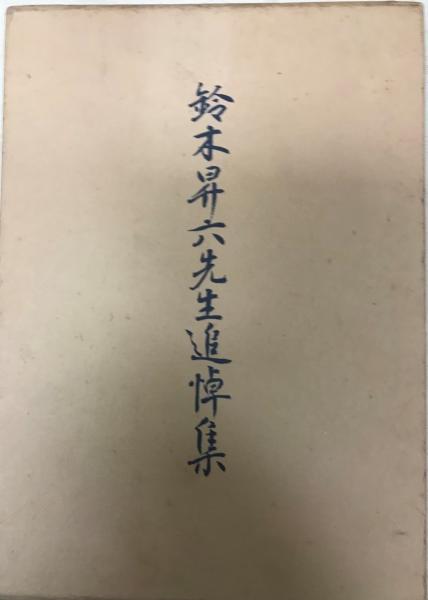 鈴木昇六先生追悼集